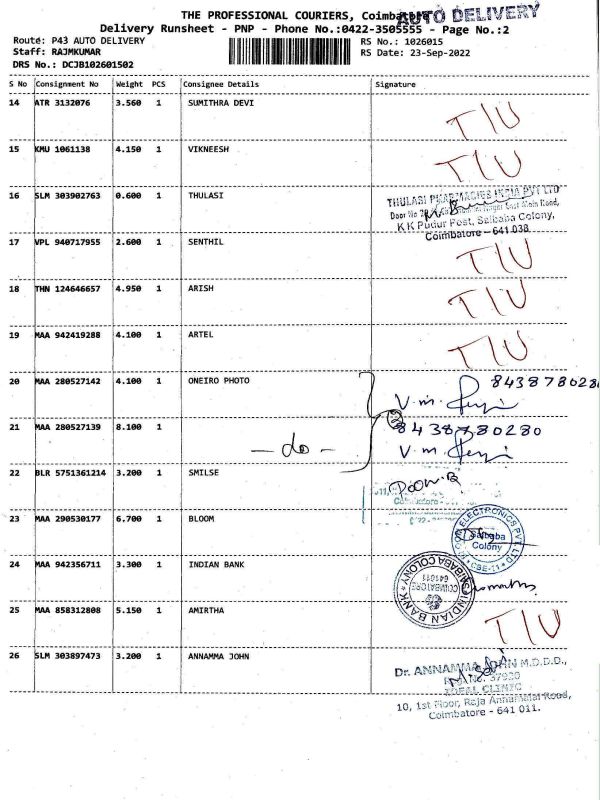 THE PROFESSIONAL COURIERS, Coimbatore
AUTO DELIVERY
Delivery Runsheet - PNP - Phone No.:0422-3505555 - Page No.:2
Route: P43 AUTO DELIVERY
RS No.: 1026015
Staff: RAJMKUMAR
RS Date: 23-Sep-2022
DRS No.: DCJB102601502
S No Consignment No Weight PCS Consignee Details Signature
14 ATR 3132076 3.560 1 SUMITHRA DEVI T/U
15 KMU 1061138 4.150 1 VIKNEESH T/U
16 SLM 303902763 0.600 1 THULASI
THULASI PHARMACIES INDIA PVT LTD
Door No East Main Road,
K K Pudur Post, Saibaba Colony,
Coimbatore - 641 038
17 VPL 940717955 2.600 1 SENTHIL T/U
18 THN 124646657 4.950 1 ARISH T/U
19 MAA 942419288 4.100 1 ARTEL T/U
20 MAA 280527142 4.100 1 ONEIRO PHOTO 8438780280
V. m.
21 MAA 280527139 8.100 1 - do - 8438780280
V. m.
22 BLR 5751361214 3.200 1 SMILSE
23 MAA 290530177 6.700 1 BLOOM
ELECTRONICS PVT. LTD
Saibaba
Colony
CBE-11
24 MAA 942356711 3.300 1 INDIAN BANK
INDIAN BANK
SAIBABA COLONY
COIMBATORE
641011
25 MAA 858312808 5.150 1 AMIRTHA T/U
26 SLM 303897473 3.200 1 ANNAMMA JOHN
Dr. ANNAMMA JOHN M.D.D.D.,
No. 37920
IDEAL CLINIC
10, 1st Floor, Raja Annamalai Road,
Coimbatore - 641 011.